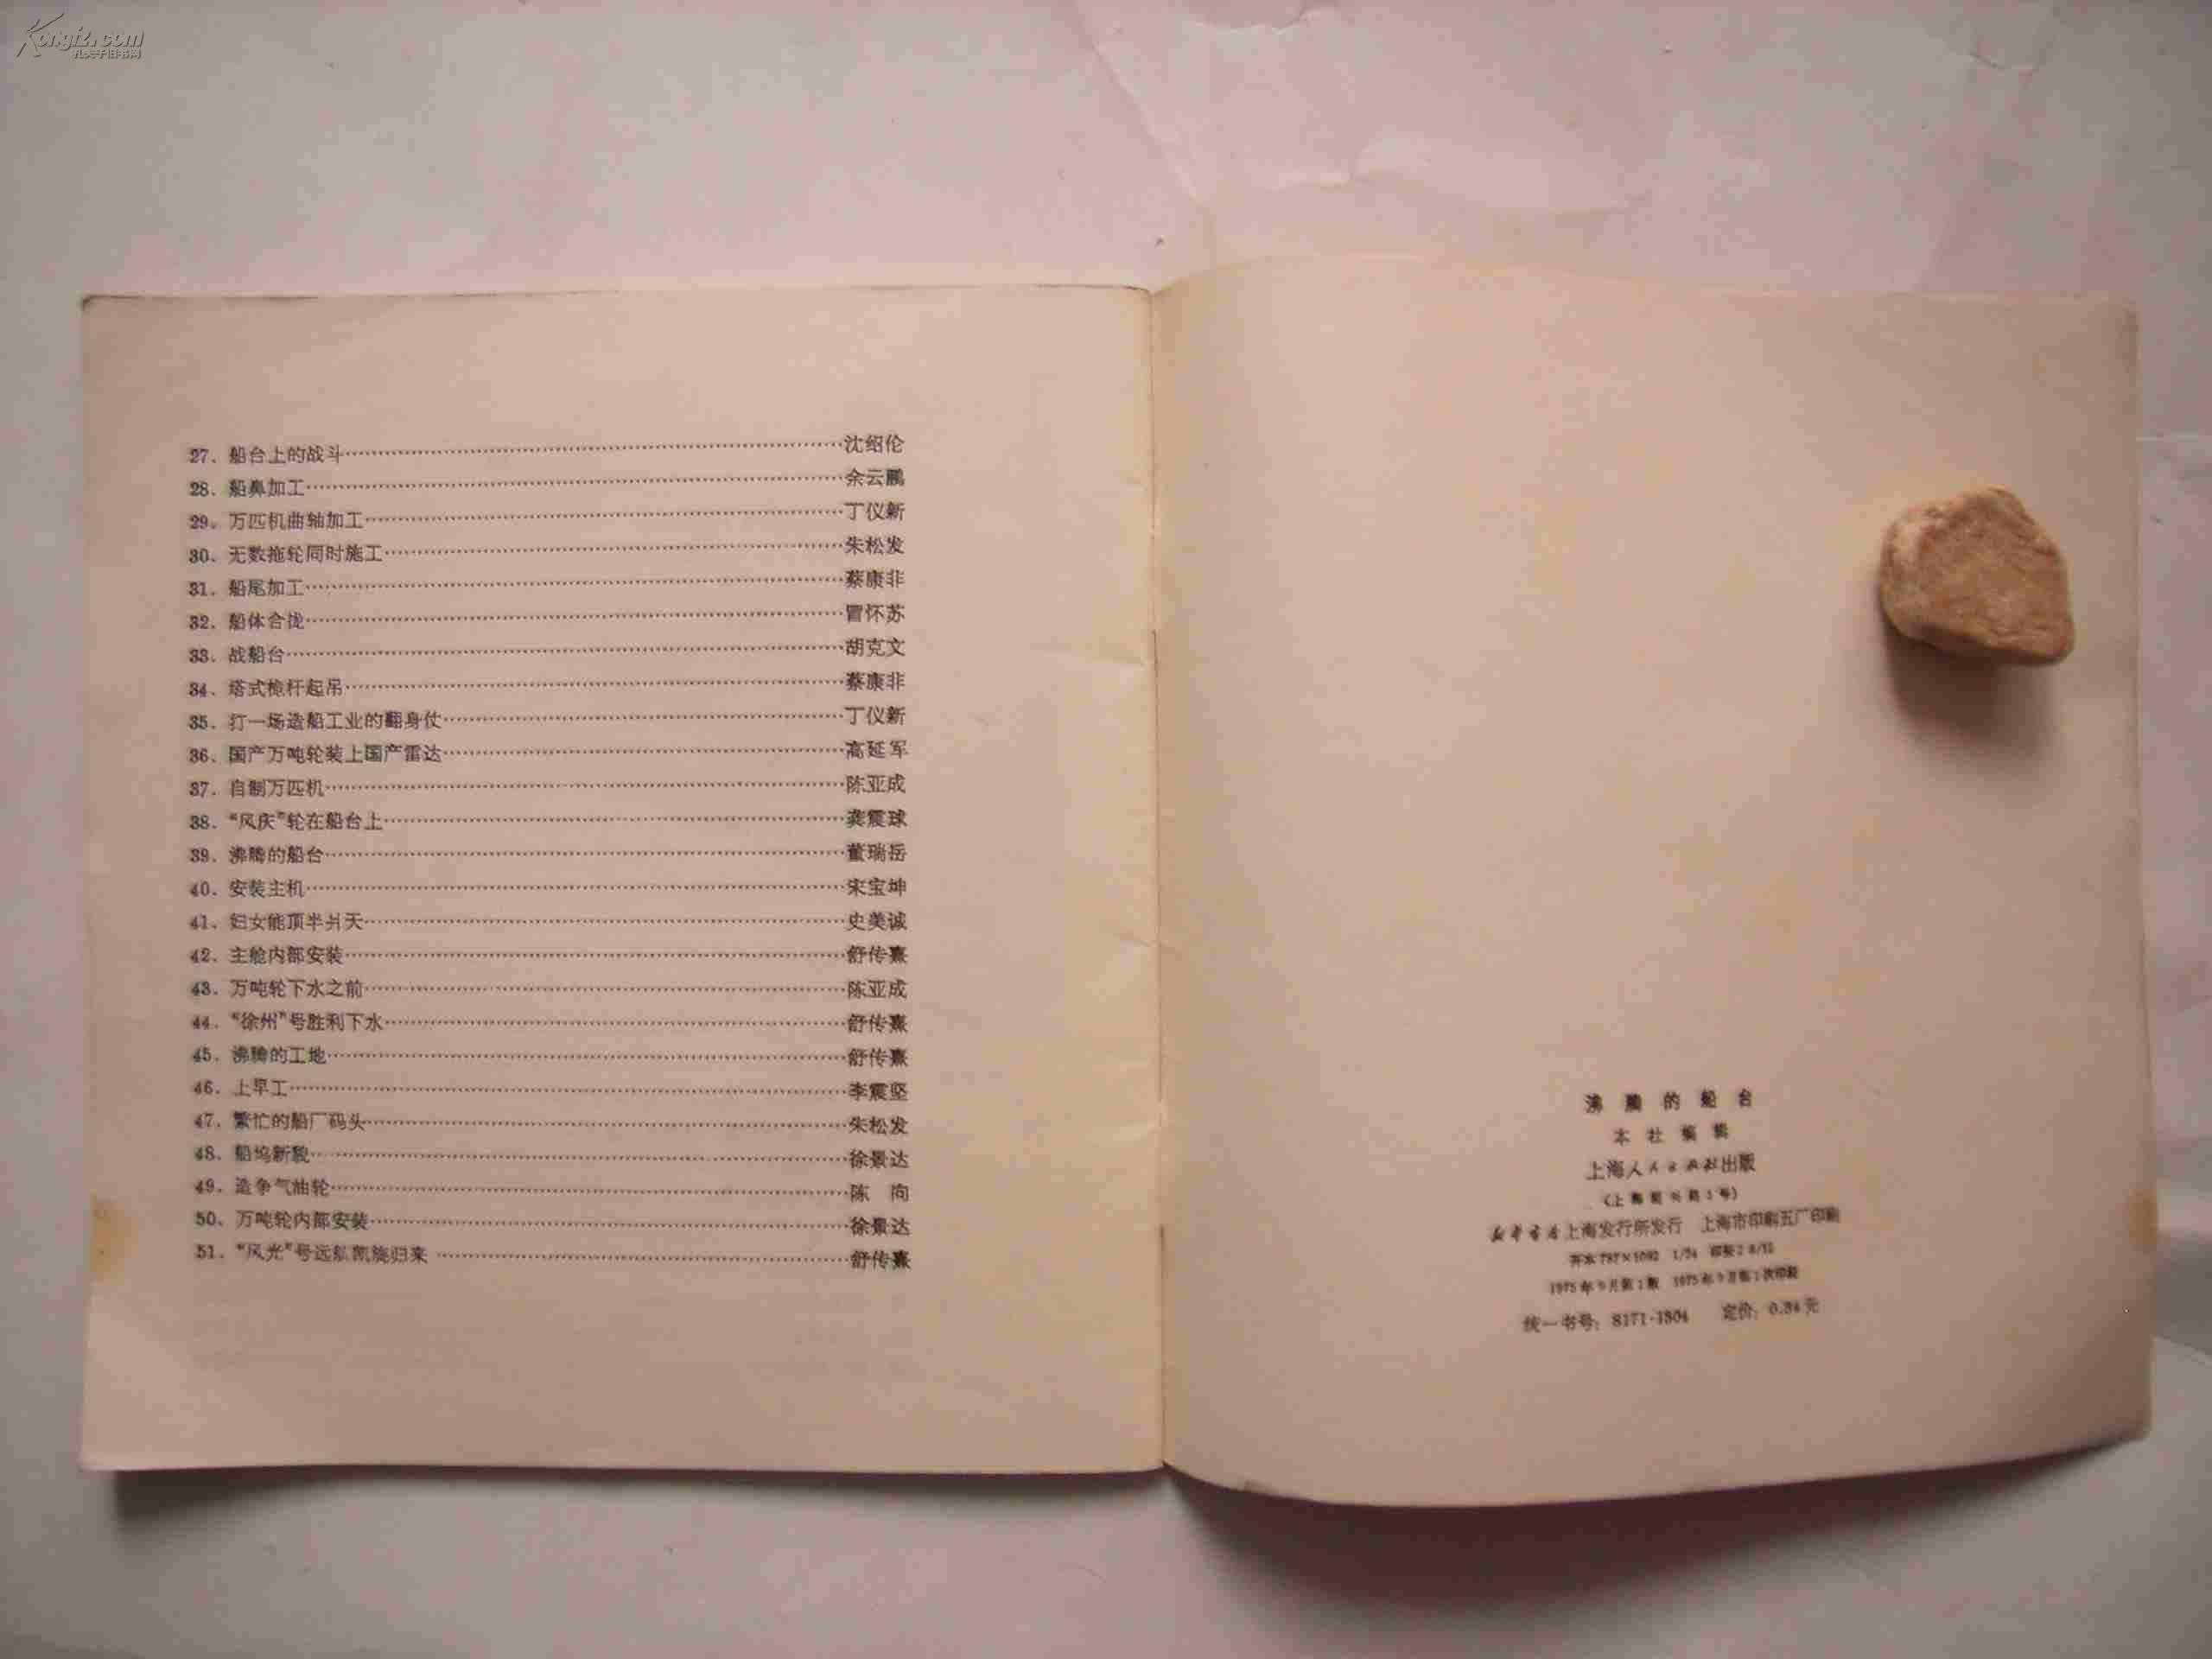 Kongfz.com
孔夫子旧书网
27. 船台上的战斗……沈绍伦
28. 船鼻加工……余云鹏
29. 万匹机曲轴加工……丁仪新
30. 无数拖轮同时施工……朱松发
31. 船尾加工……蔡康非
32. 船体合拢……冒怀苏
33. 战船台……胡克文
34. 塔式桅杆起吊……蔡康非
35. 打一场造船工业的翻身仗……丁仪新
36. 国产万吨轮装上国产雷达……高延军
37. 自制万匹机……陈亚成
38. “风庆”轮在船台上……龚震球
39. 沸腾的船台……董瑞岳
40. 安装主机……宋宝坤
41. 妇女能顶半爿天……史美诚
42. 主舱内部安装……舒传熹
43. 万吨轮下水之前……陈亚成
44. “徐州”号胜利下水……舒传熹
45. 沸腾的工地……舒传熹
46. 上早工……李震坚
47. 繁忙的船厂码头……朱松发
48. 船坞新貌……徐景达
49. 造争气油轮……陈 向
50. 万吨轮内部安装……徐景达
51. “风光”号远航凯旋归来……舒传熹
沸腾的船台
本社编辑
上海人民出版社出版
(上海绍兴路5号)
新华书店上海发行所发行 上海市印刷五厂印刷
开本 787×1092 1/24 印张 2 8/12
1975年9月第1版 1975年9月第1次印刷
统一书号: 8171·1304 定价: 0.34元